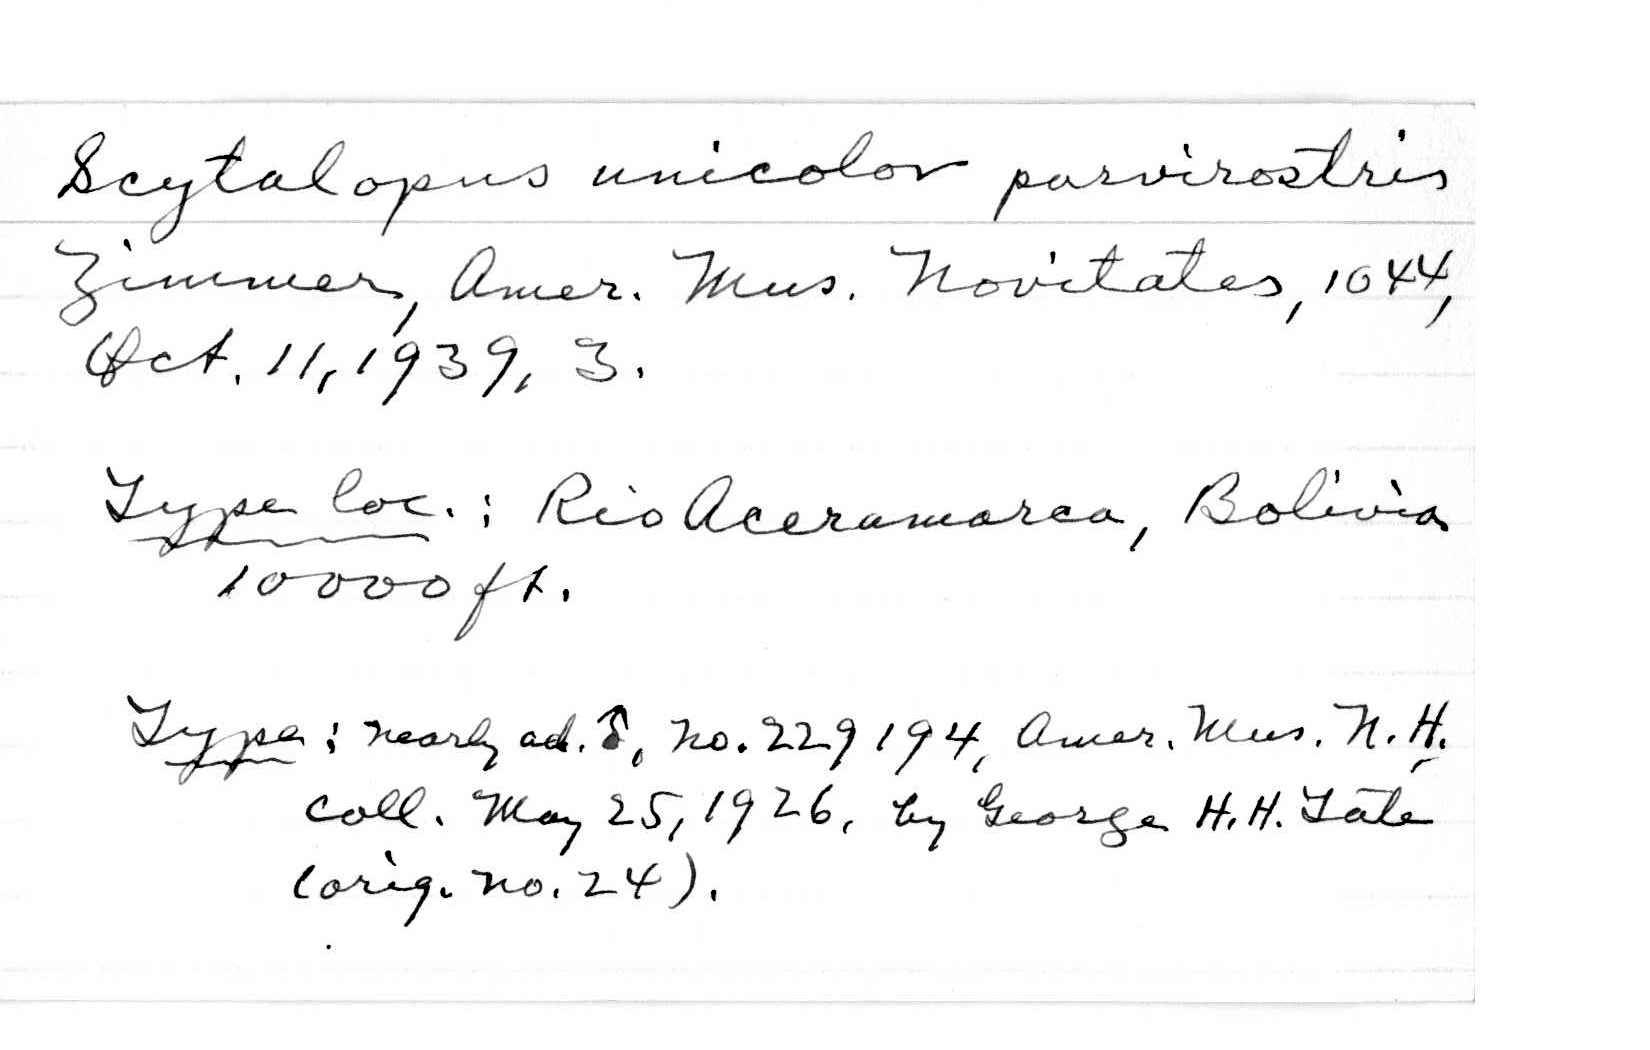 Scytalopus unicolor parvirostris
Zimmer, Amer. Mus. Novitates, 1044,
Oct. 11, 1939, 3.
Type loc.: Rio Aceramarca, Bolivia
10000 ft.
Type: nearly ad. ♂, No. 229194, Amer. Mus. N.H.
coll. May 25, 1926, by George H.H. Tate
(orig. no. 24).